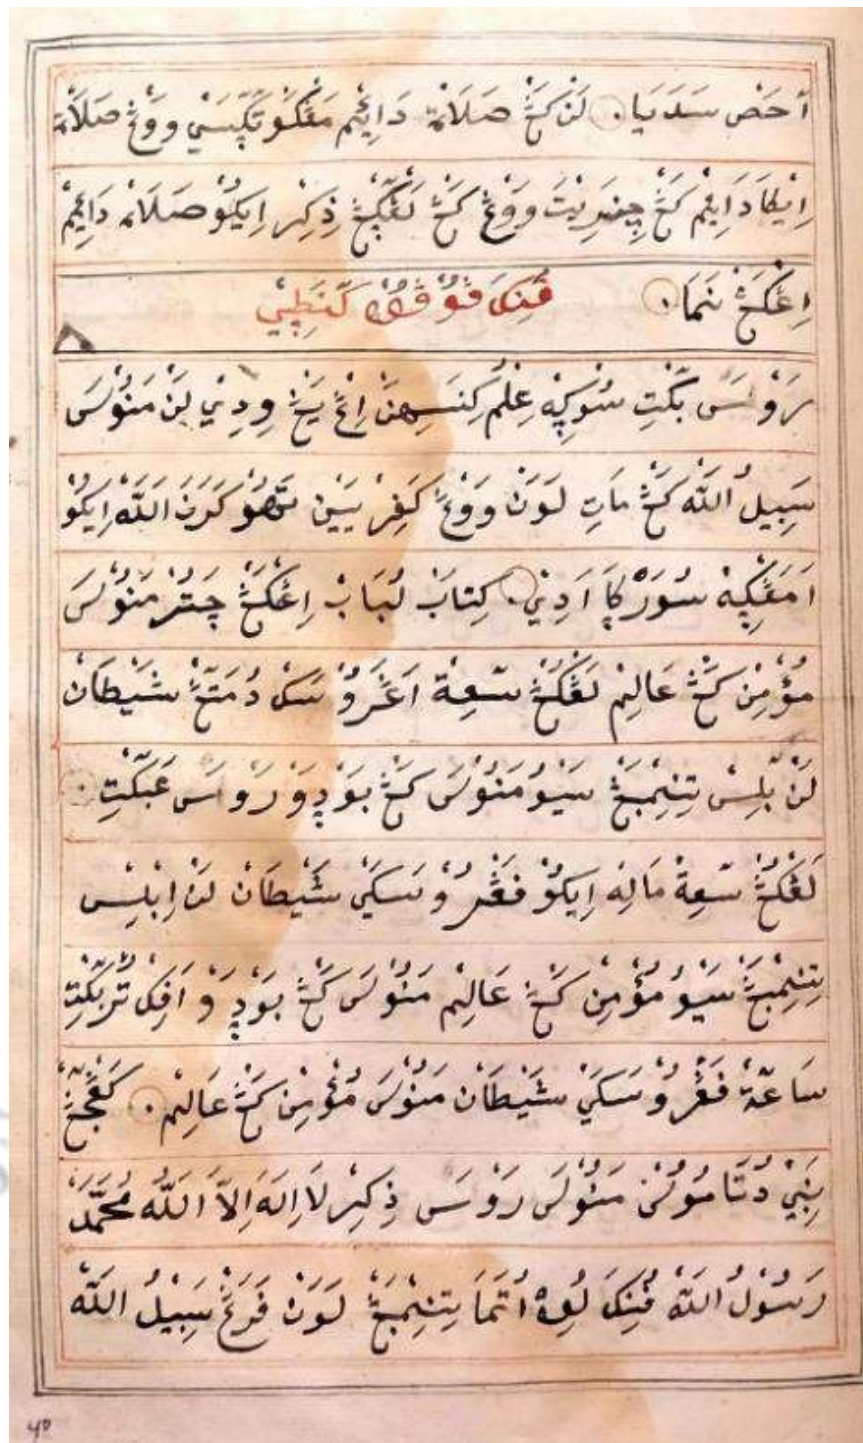 أَحَضْ سَدَيَا. لَنْ كَڠْ صَلَاةْ دَاِئِمْ مَڠْكَوْ تَڮَّسَيْ ووَڠْ صَلَاةْ
اِيْكَا دَاِيِمْ كَڠْ چِيْدَرِيْتَ ووَڠْ كَڠْ لَڠْڮَڠْ ذِكِرْ اِيكُوْ صَلَاةْ دَاِئِمْ
اِڠْكَڠْ نَمَا. ڤُنِكَ ڤُوْڤُوْهْ
رَوْسَ بَڬْتِ سُوْڮِهْ عِلْمُ اِڠْ يَڠْ وِدِيْ لَنْ مَنُوْسَ
سَبِيلُ اللّٰه كَڠْ مَاتِ لَوَنْ ووَڠْ كَفِرْ يَيْنْ كَرَنَ اللّٰه اِيكُوْ
اَمَڠْڮِهْ سُوَرْڮَا اَدِيْ. كِتَابْ لُبَابْ اِڠْكَڠْ چَتُرْ مَنُوْسَ
مُؤْمِنْ كَڠْ عَالِمْ لَڠْكُڠْ سَعِةْ اَڠَرُوْ سَكَ دُمَتَڠْ شَيْطَانْ
لَنْ بْلِسْ تِنِمْبَڠْ سَيْوُ مَنُوْسَ كَڠْ بَوْدَوْ رَوْسَ عَبَكْتِ.
لَڠْكُڠْ سَعِةْ مَالِهْ اِيكُوْ ڤَڠْرُوْ سَكَيْ شَيْطَانْ لَنْ اِبْلِسْ
تِنِمْبَڠْ سَيْوُ مُؤْمِنْ كَڠْ عَالِمْ مَنُوْسَ كَڠْ بَوْدَوْ
سَاعَةْ ڤَڠْرُوْ سَكَيْ شَيْطَانْ مَنُوْسَ مُؤْمِنْ كَڠْ عَالِمْ. كَڠْجَڠْ
نَبِيْ دُتَا مَنُوْسَ رَوْسَ ذِكِيْرْ لَا اِلَهَ اِلَّا اللّٰه مُحَمَّدْ
رَسُوْلُ اللّٰه ڤُنِكَ لُوِهْ اُتَمَا تِنِمْبَڠْ لَوَنْ ڤَرَڠْ سَبِيْلُ اللّٰه